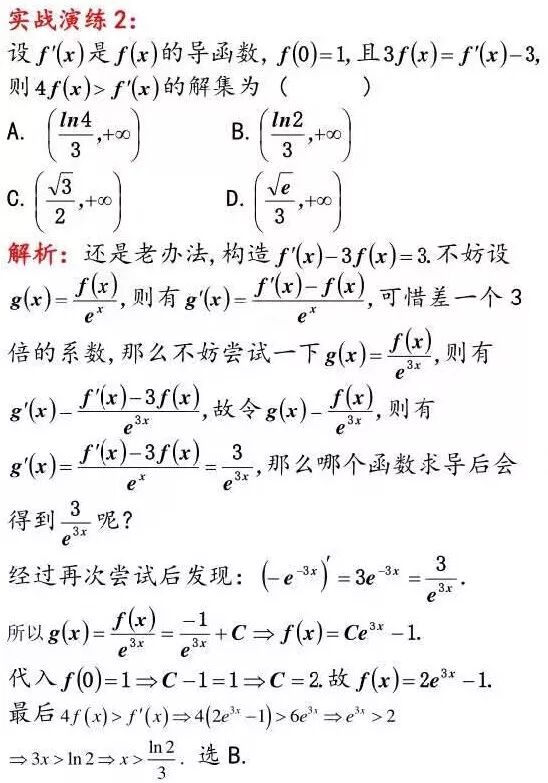 实战演练2:
设 f'(x) 是 f(x) 的导函数, f(0)=1, 且 3f(x)=f'(x)-3,
则 4f(x)>f'(x) 的解集为 (    )
A. (ln4/3,+∞) B. (ln2/3,+∞)
C. (√3/2,+∞) D. (√e/3,+∞)
解析: 还是老办法,构造 f'(x)-3f(x)=3. 不妨设
g(x)=f(x)/e^x, 则有 g'(x)=(f'(x)-f(x))/e^x, 可惜差一个 3
倍的系数, 那么不妨尝试一下 g(x)=f(x)/e^{3x}, 则有
g'(x)-(f'(x)-3f(x))/e^{3x}, 故令 g(x)-f(x)/e^{3x}, 则有
g'(x)=(f'(x)-3f(x))/e^x=3/e^{3x}, 那么哪个函数求导后会
得到 3/e^{3x} 呢?
经过再次尝试后发现: (-e^{-3x})'=3e^{-3x}=3/e^{3x}.
所以 g(x)=f(x)/e^{3x}=-1/e^{3x}+C⇒f(x)=Ce^{3x}-1.
代入 f(0)=1⇒C-1=1⇒C=2. 故 f(x)=2e^{3x}-1.
最后 4f(x)>f'(x)⇒4(2e^{3x}-1)>6e^{3x}⇒e^{3x}>2
⇒3x>ln2⇒x>ln2/3. 选 B.